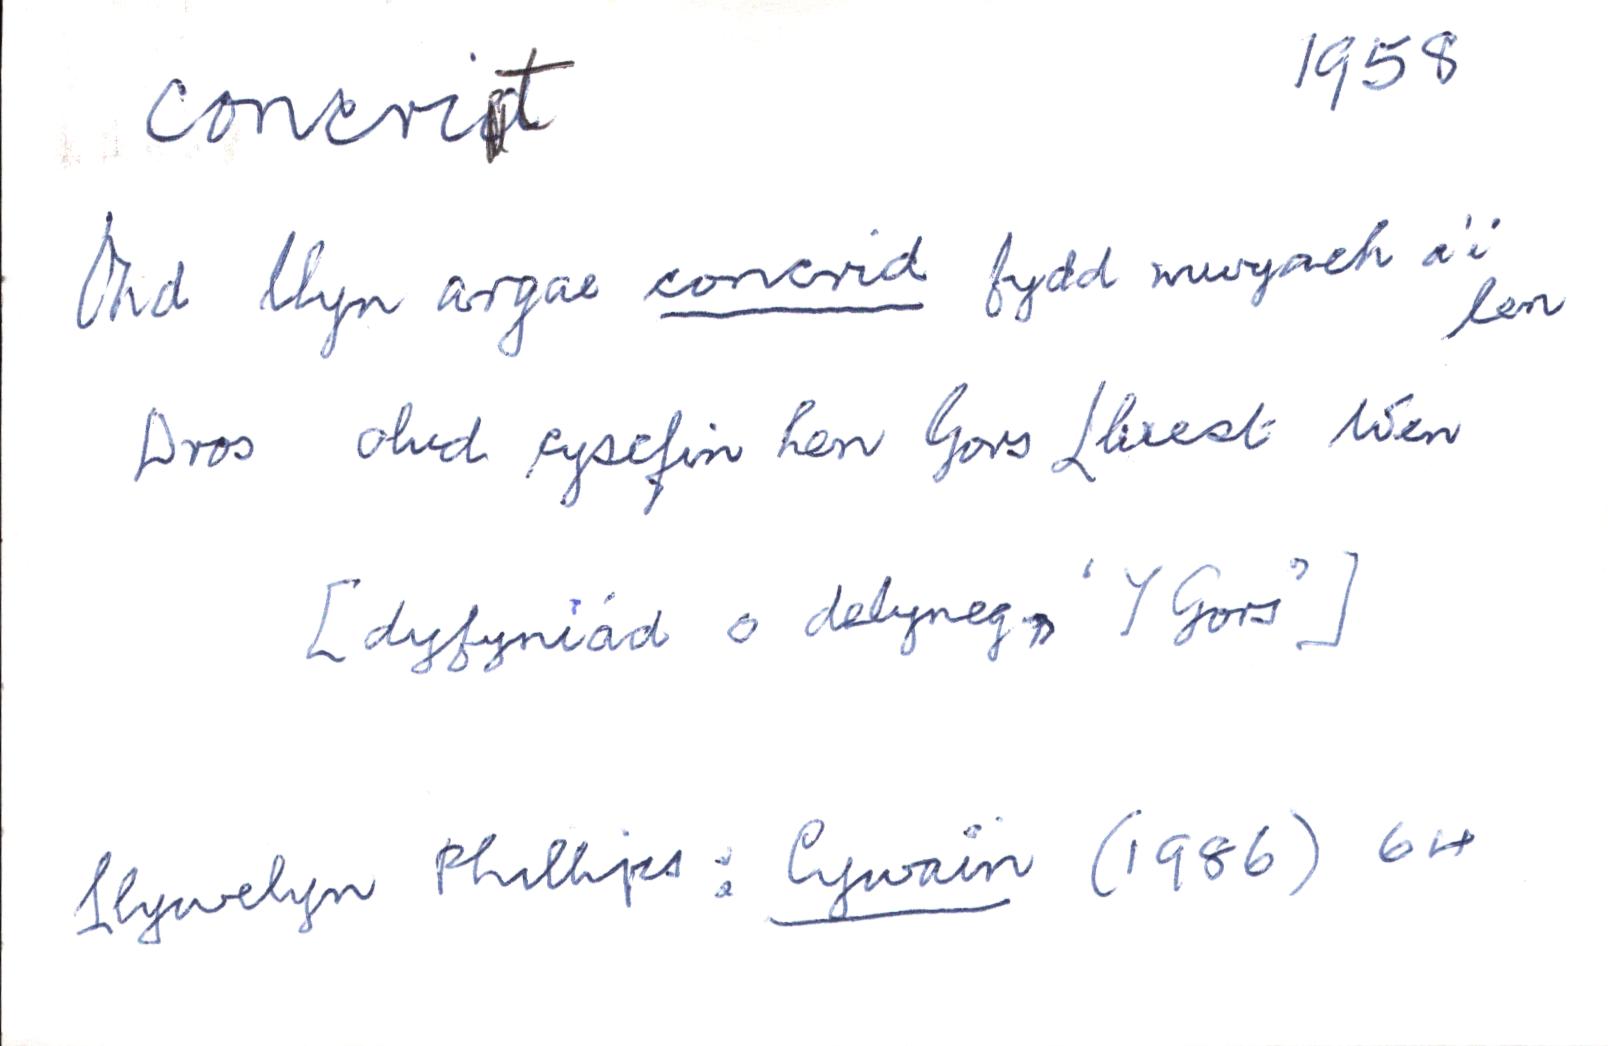 concrit 1958
Ond llyn argae concrid fydd mwyach a'i
len
Dros olud cysefin hen Gors Lluest Wen
[dyfyniad o delyneg, 'Y Gors']
Llywelyn Phillips : Cywain (1986) 64